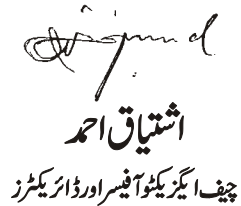 اشتیاق احمد
چیف ایگزیکٹو آفیسر اور ڈائریکٹرز